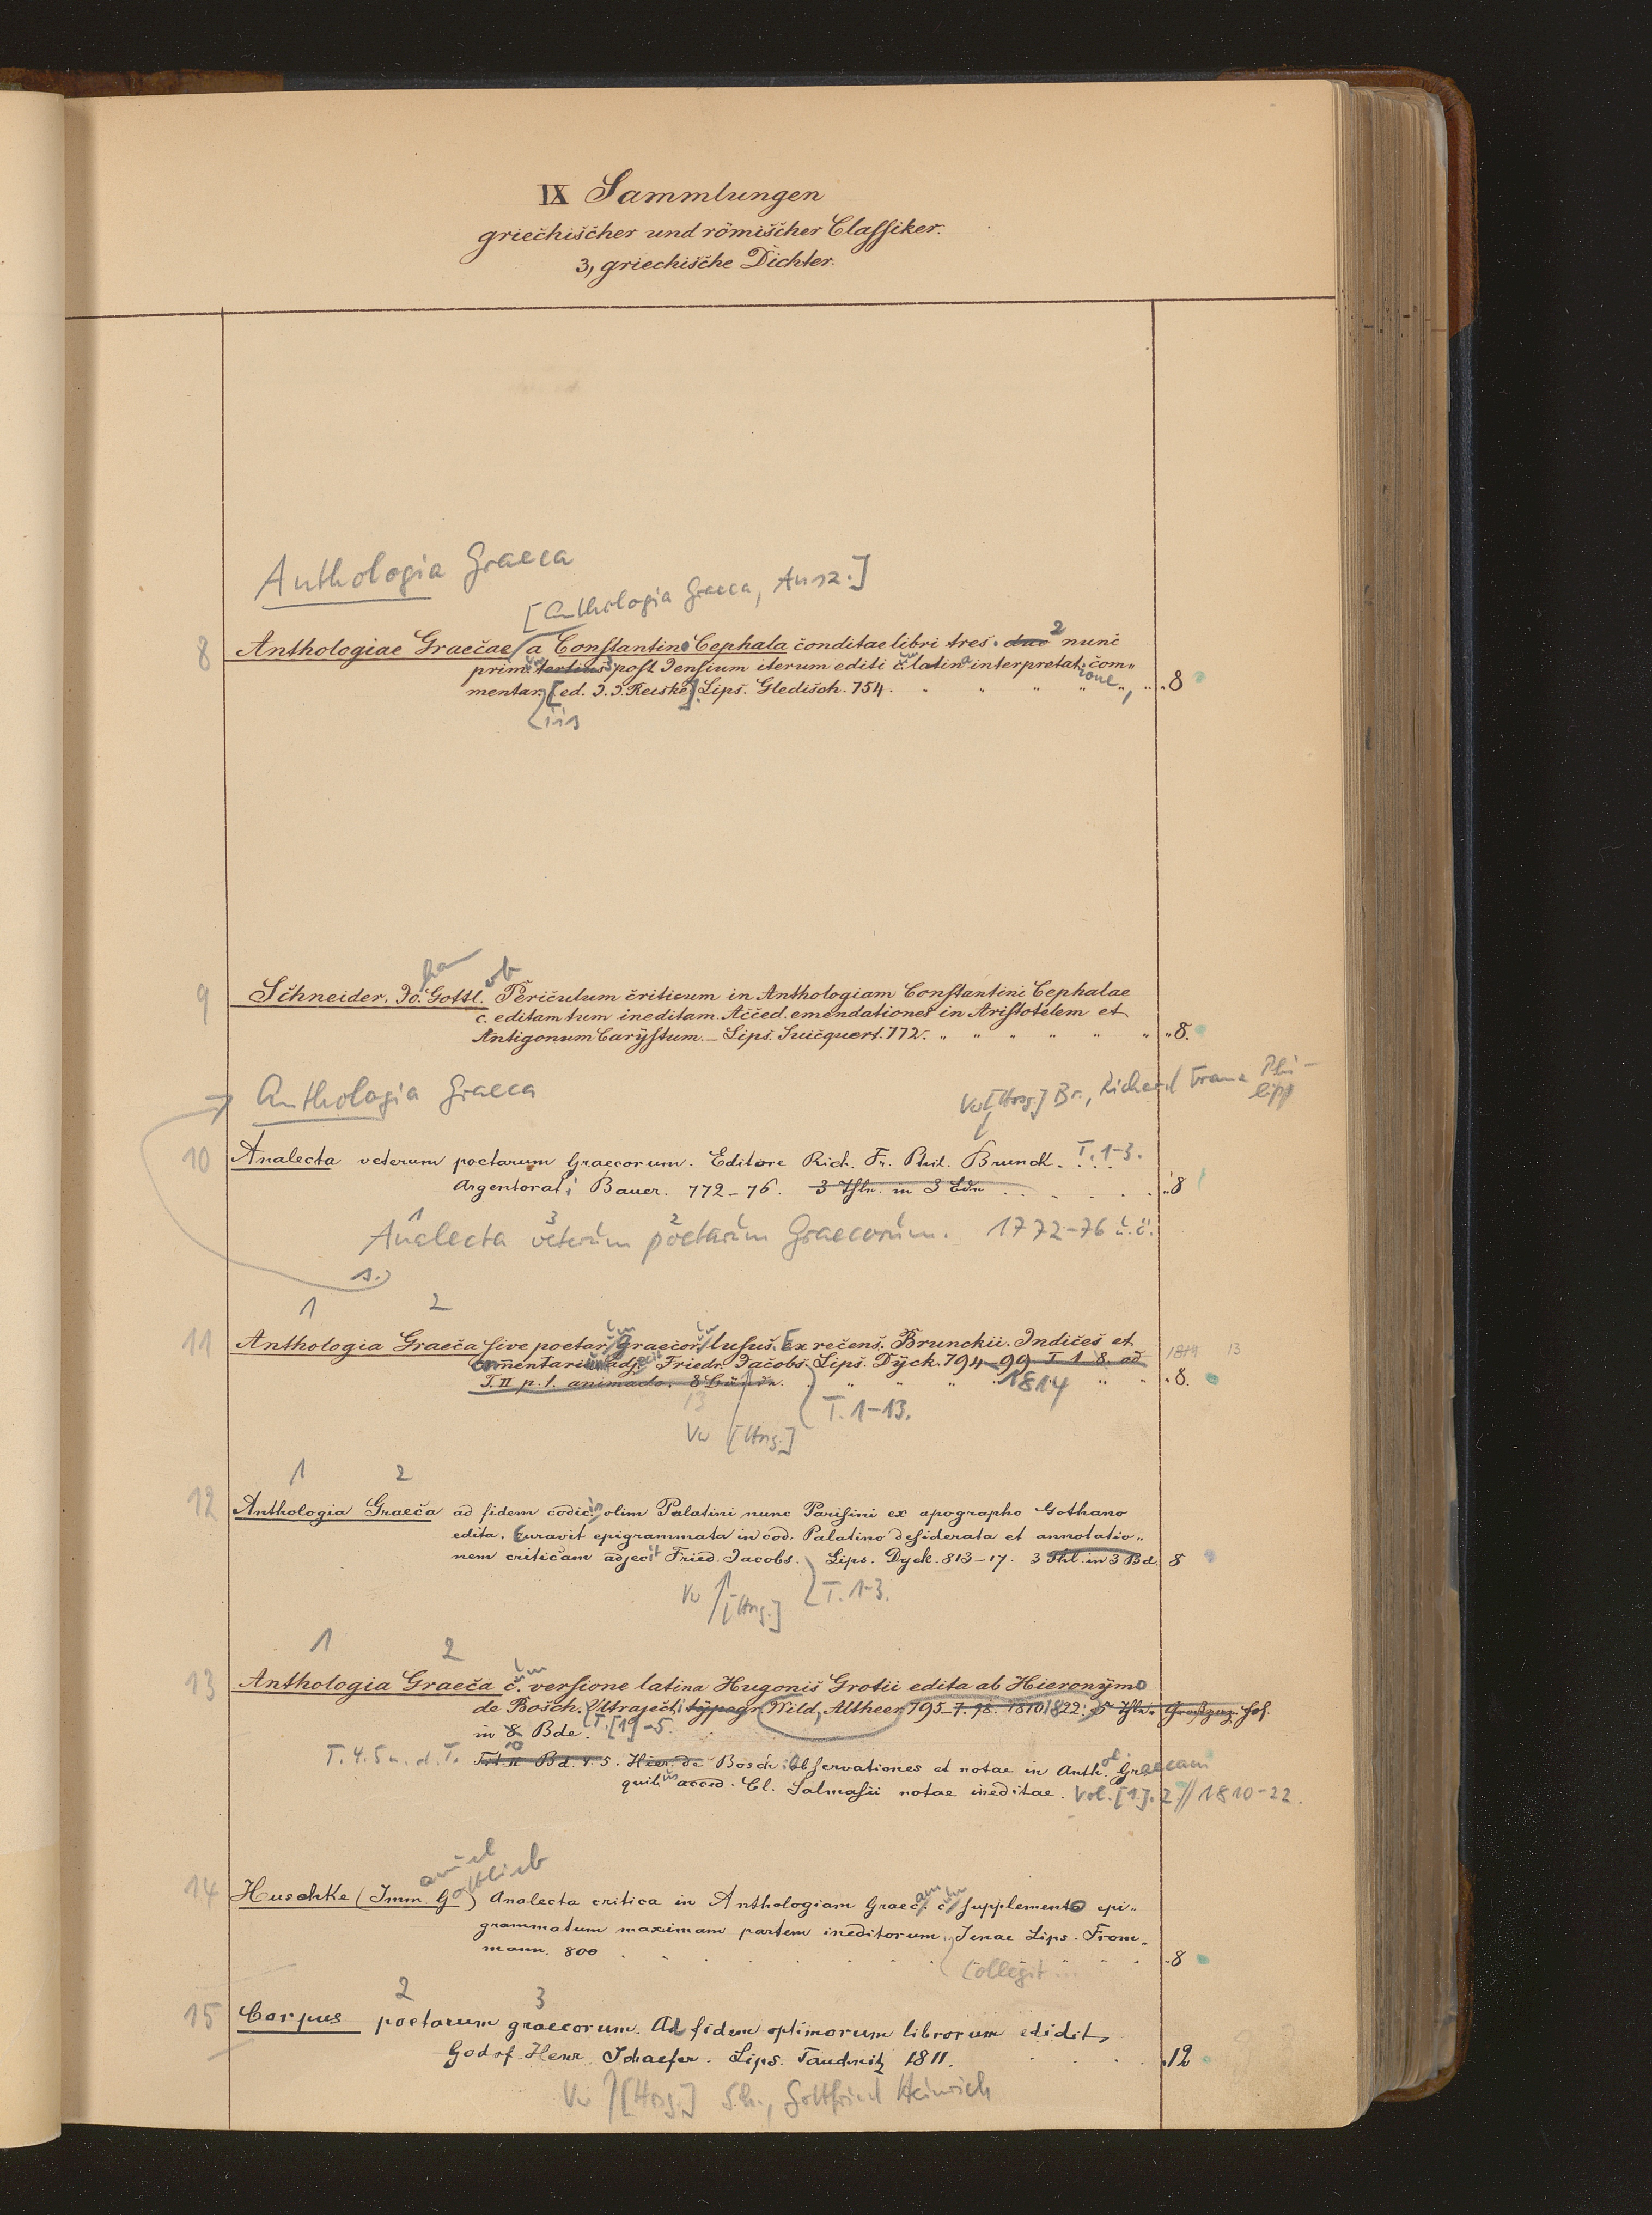 IX Sammlungen
griechischer und römischer Classiker.
3, griechische Dichter.
Anthologia Graeca
[Anthologia Graeca, Ausz.]
8 Anthologiae Graecae a Constantino Cephala conditae libri tres. duo 2 nunc
primum tertius post Jensium iterum editi cum latina interpretatione, com„
mentariis [ed. J. J. Reiske]. Lips. Gledisch. 754. 8
9 Schneider, Joha. Gottlob. Periculum criticum in Anthologiam Constantini Cephalae
c. editam tum ineditam. Acced. emendationes in Aristotelem et
Antigonum Carystum. – Lips. Suicquert. 772. 8.
Anthologia Graeca
Vw [Hrsg.] Br., Richard Franz Phi-
lipp
10 Analecta veterum poetarum Graecorum. Editore Rich. Fr. Phil. Brunck. T. 1-3.
Argentorati Bauer. 772–76. 3 Thle. in 3 Bdn 8
1 3 2
Analecta veterum poetarum Graecorum. 1772-76 u.ü.
s.
1 2
11 Anthologia Graeca sive poetarum Graecorum lusus. Ex recens. Brunckii. Indices et
commentarium adj. Friedr. Jacobs. Lips. Dyck. 794–99. T. 1–8. ad 1814 13
T. II p. 1. animadv. 8 Bände. 1814 8.
13 T. 1-13.
Vw [Hrsg.]
1 2
12 Anthologia Graeca ad fidem codicis olim Palatini nunc Parisini ex apographo Gothano
edita. Curavit epigrammata in cod. Palatino desiderata et annotatio„
nem criticam adjecit Fried. Jacobs. Lips. Dyck. 813–17. 3 Thl. in 3 Bd. 8
Vw [Hrsg.] T. 1-3.
1 2
13 Anthologia Graeca cum versione latina Hugonis Grotii edita ab Hieronymo
de Bosch. Ultrajecti typogr. Wild, Altheer 795–7. 98. 1810 1822. 5 Thle.
in 8 Bde. T. [1]-5.
T. 4. 5 u. d. T. Bd. 4. 5. Hier. de Bosch Observationes et notae in Anthol. Graecam
quibus acced. Cl. Salmasii notae ineditae. Vol. [1]. 2 // 1810-22.
14 Huschke (Immanuel Gottlieb) Analecta critica in Anthologiam Graecam cum supplemento epi„
grammatum maximam partem ineditorum. Jenae Lips. From„
mann. 800 8
Collegit ...
2 3
15 Corpus poetarum graecorum. Ad fidem optimorum librorum edidit
Godof. Henr. Schaefer. Lips. Tauchnitz 1811. 12
Vw [Hrsg.] Sch., Gottfried Heinrich